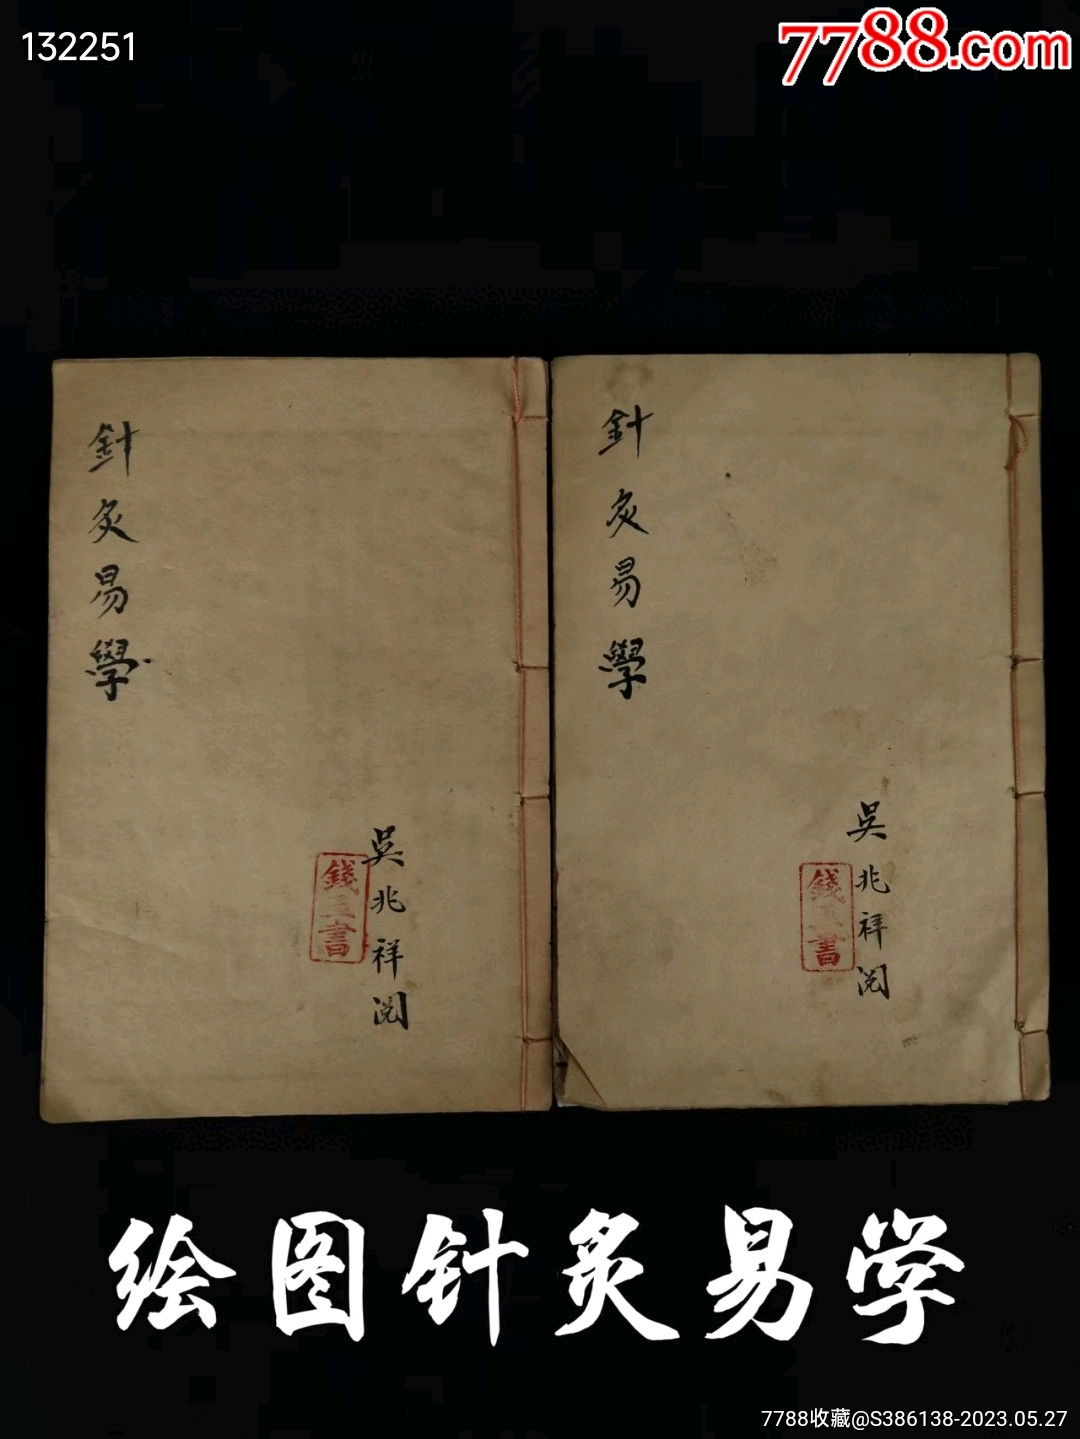 132251
7788.com
針灸易學
吳兆祥閱
錢書
針灸易學
吳兆祥閱
錢書
绘图针灸易学
7788收藏@S386138-2023.05.27